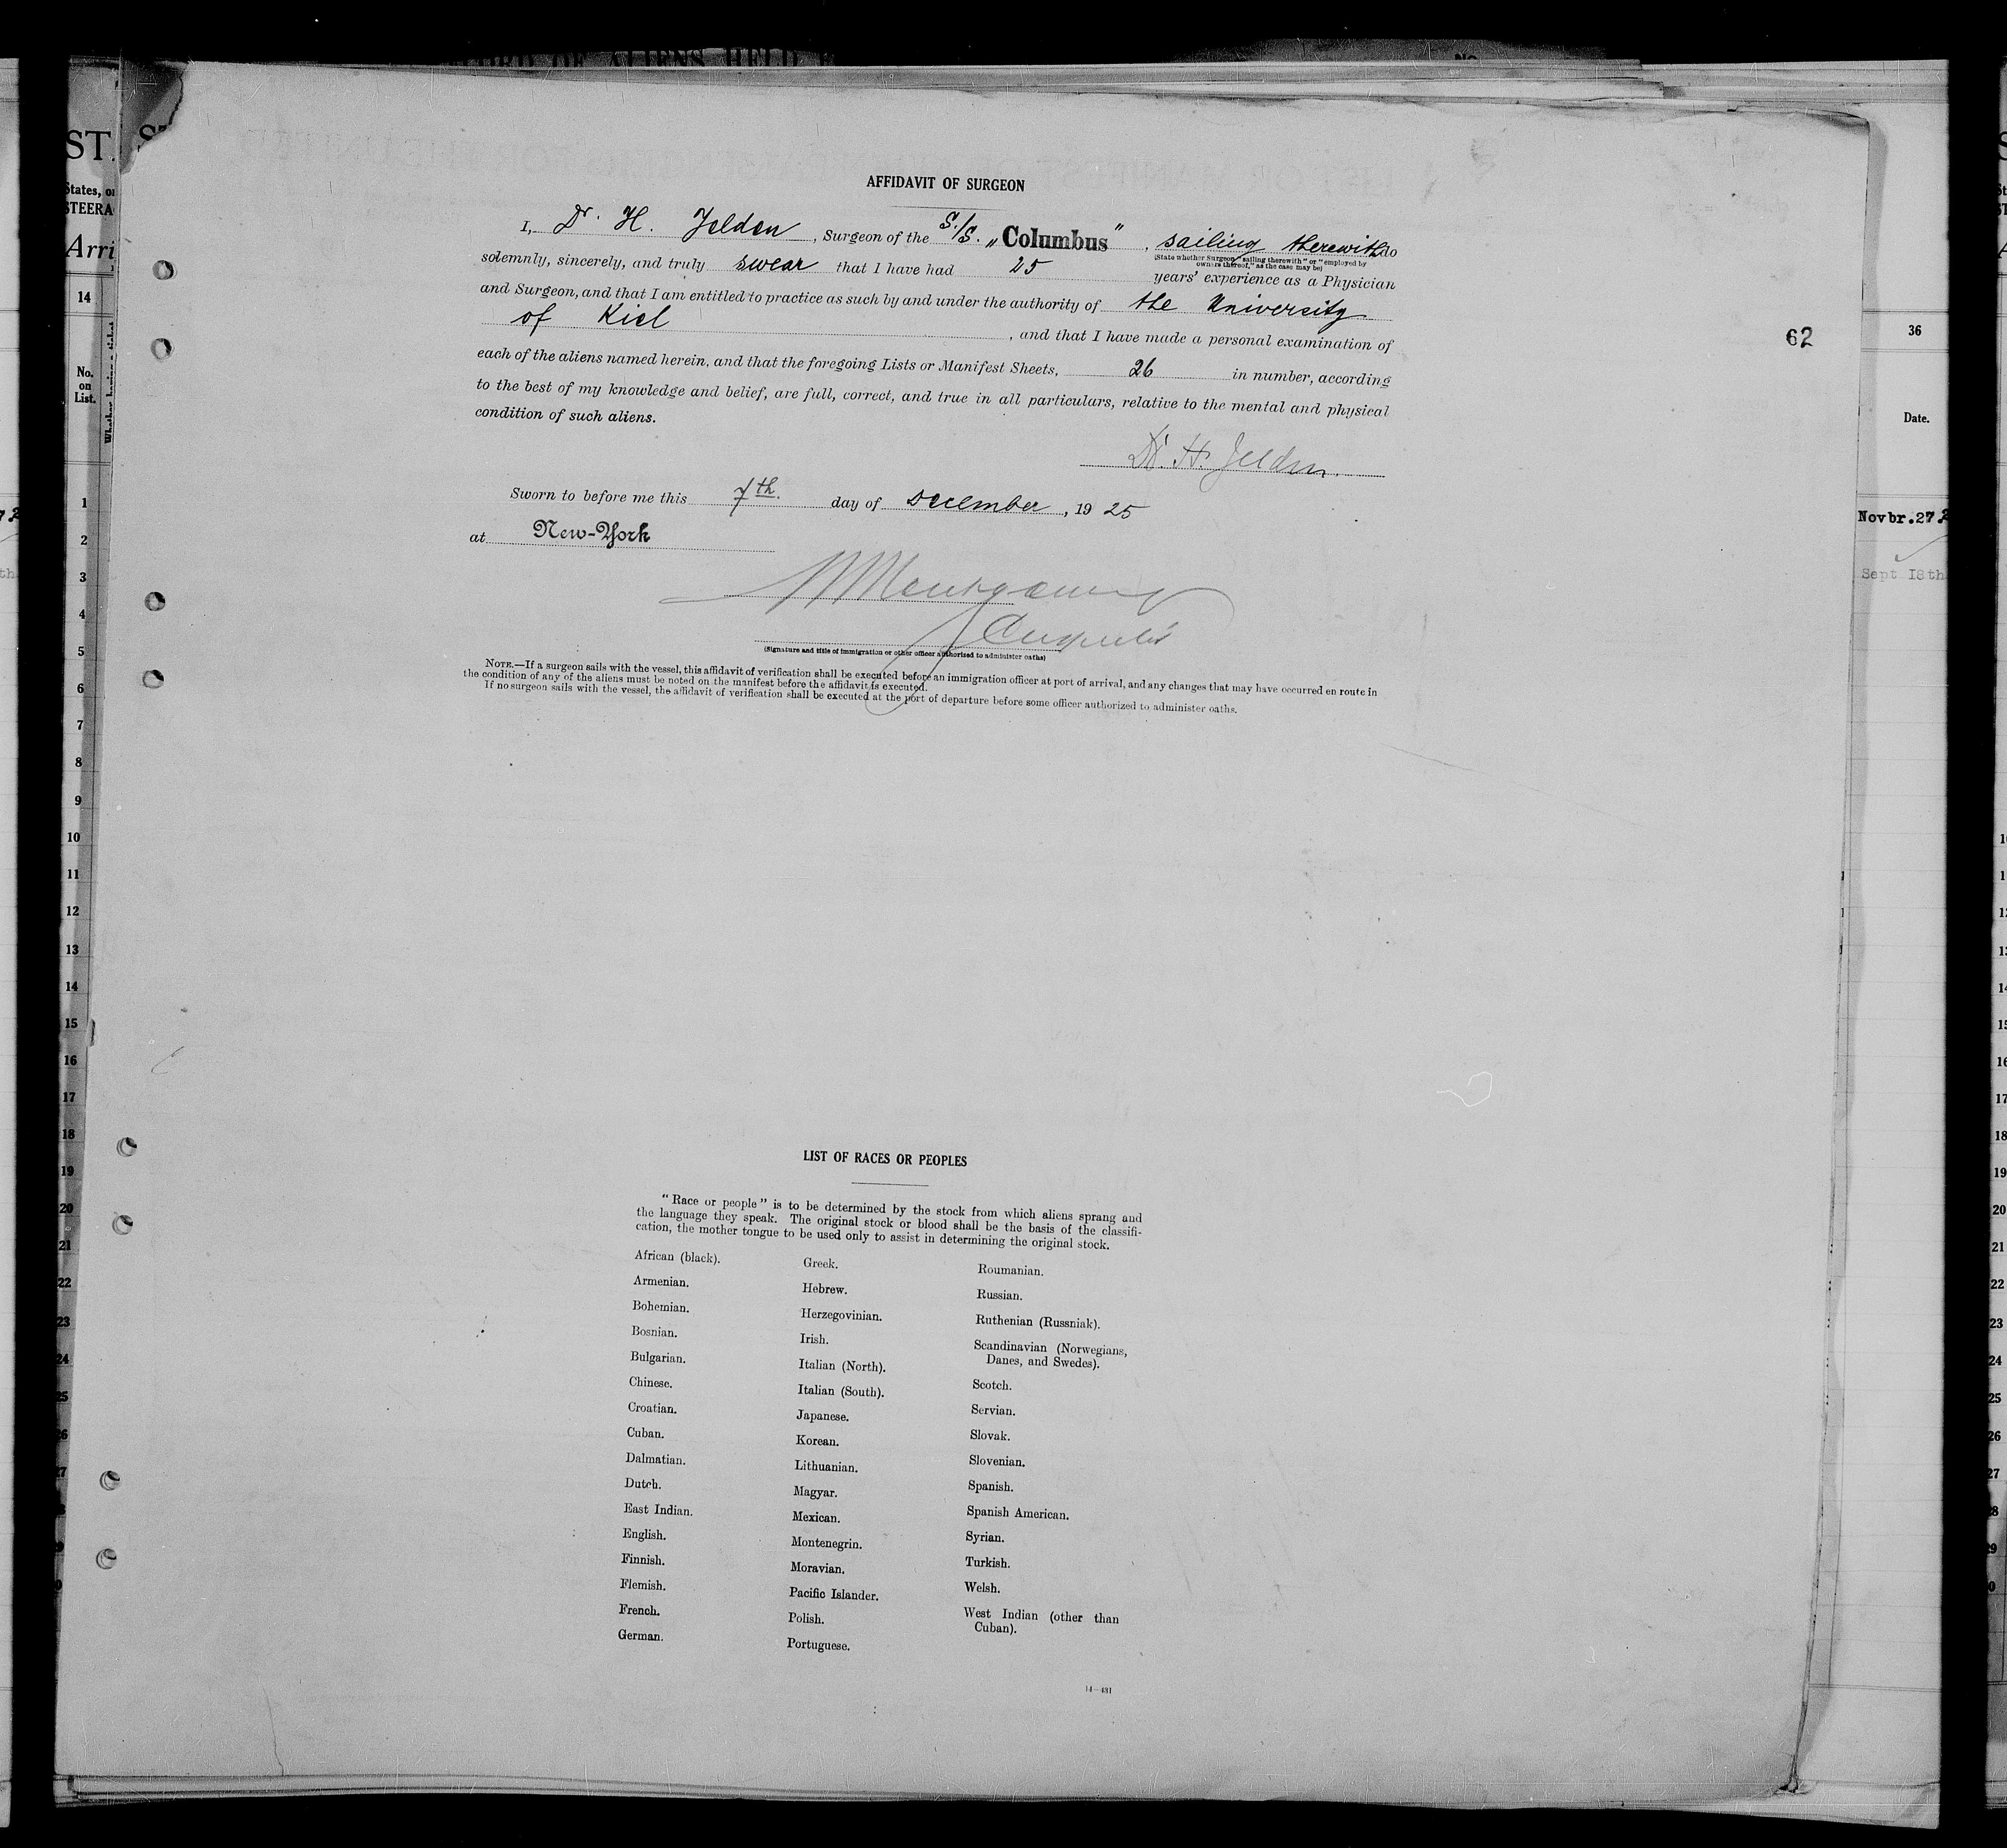 CORD OF ALIENS HELD
AFFIDAVIT OF SURGEON
I, Dr. H. Jelden, Surgeon of the S./S. „Columbus", sailing therewith do
(State whether Surgeon "sailing therewith" or "employed by
owners thereof," as the case may be)
solemnly, sincerely, and truly swear that I have had 25 years' experience as a Physician
and Surgeon, and that I am entitled to practice as such by and under the authority of the University
of Kiel, and that I have made a personal examination of
each of the aliens named herein, and that the foregoing Lists or Manifest Sheets, 26 in number, according
to the best of my knowledge and belief, are full, correct, and true in all particulars, relative to the mental and physical
condition of such aliens.
Dr. H. Jelden.
Sworn to before me this 7th. day of December, 1925
at New-York
(Signature and title of immigration or other officer authorized to administer oaths)
NOTE.—If a surgeon sails with the vessel, this affidavit of verification shall be executed before an immigration officer at port of arrival, and any changes that may have occurred en route in
the condition of any of the aliens must be noted on the manifest before the affidavit is executed.
If no surgeon sails with the vessel, the affidavit of verification shall be executed at the port of departure before some officer authorized to administer oaths.
62
LIST OF RACES OR PEOPLES
"Race or people" is to be determined by the stock from which aliens sprang and
the language they speak. The original stock or blood shall be the basis of the classifi-
cation, the mother tongue to be used only to assist in determining the original stock.
African (black).
Armenian.
Bohemian.
Bosnian.
Bulgarian.
Chinese.
Croatian.
Cuban.
Dalmatian.
Dutch.
East Indian.
English.
Finnish.
Flemish.
French.
German.
Greek.
Hebrew.
Herzegovinian.
Irish.
Italian (North).
Italian (South).
Japanese.
Korean.
Lithuanian.
Magyar.
Mexican.
Montenegrin.
Moravian.
Pacific Islander.
Polish.
Portuguese.
Roumanian.
Russian.
Ruthenian (Russniak).
Scandinavian (Norwegians,
Danes, and Swedes).
Scotch.
Servian.
Slovak.
Slovenian.
Spanish.
Spanish American.
Syrian.
Turkish.
Welsh.
West Indian (other than
Cuban).
14—481
ST.
States, or
STEERA
Arri
14
No.
on
List.
1
2
3
4
5
6
7
8
9
10
11
12
13
14
15
16
17
18
19
20
21
22
23
24
25
36
Date.
Novbr. 27
Sept 18th